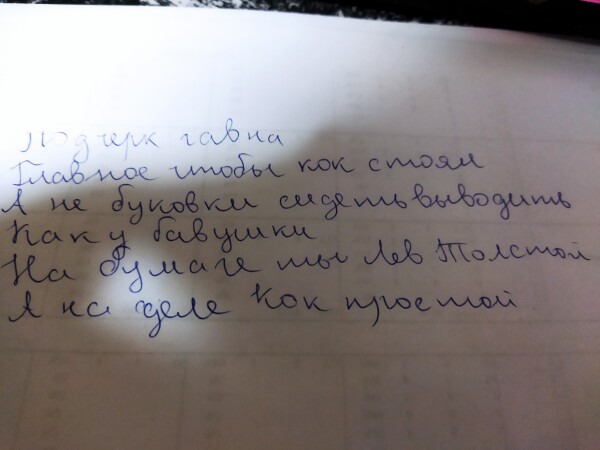 Подчерк гавна
Главное чтобы кок стоял
А не буковки сидеть выводить
Как у бавушки
На бумаге ты Лев Толстой
А на деле Кок простой.